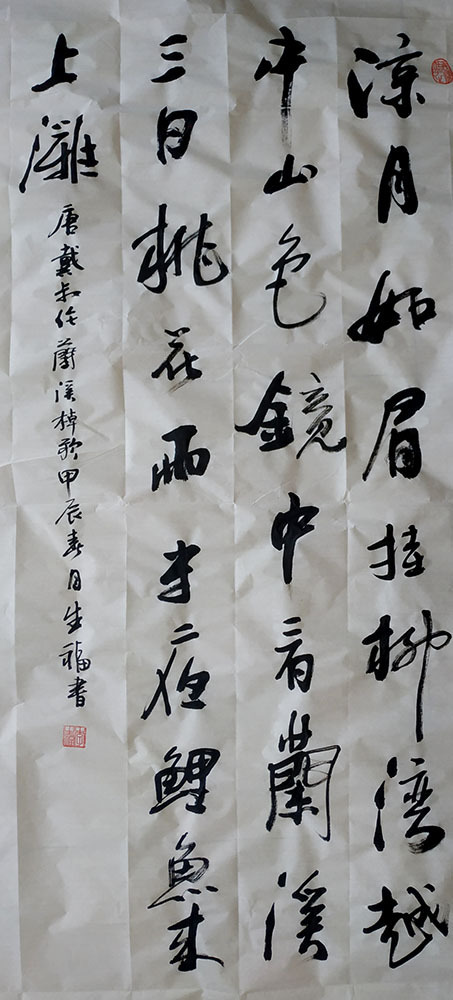 凉月如眉挂柳湾越
中山色镜中看蘭溪
三日桃花雨半夜鲤魚来
上灘
唐戴叔伦蘭溪棹歌甲辰春月生福書